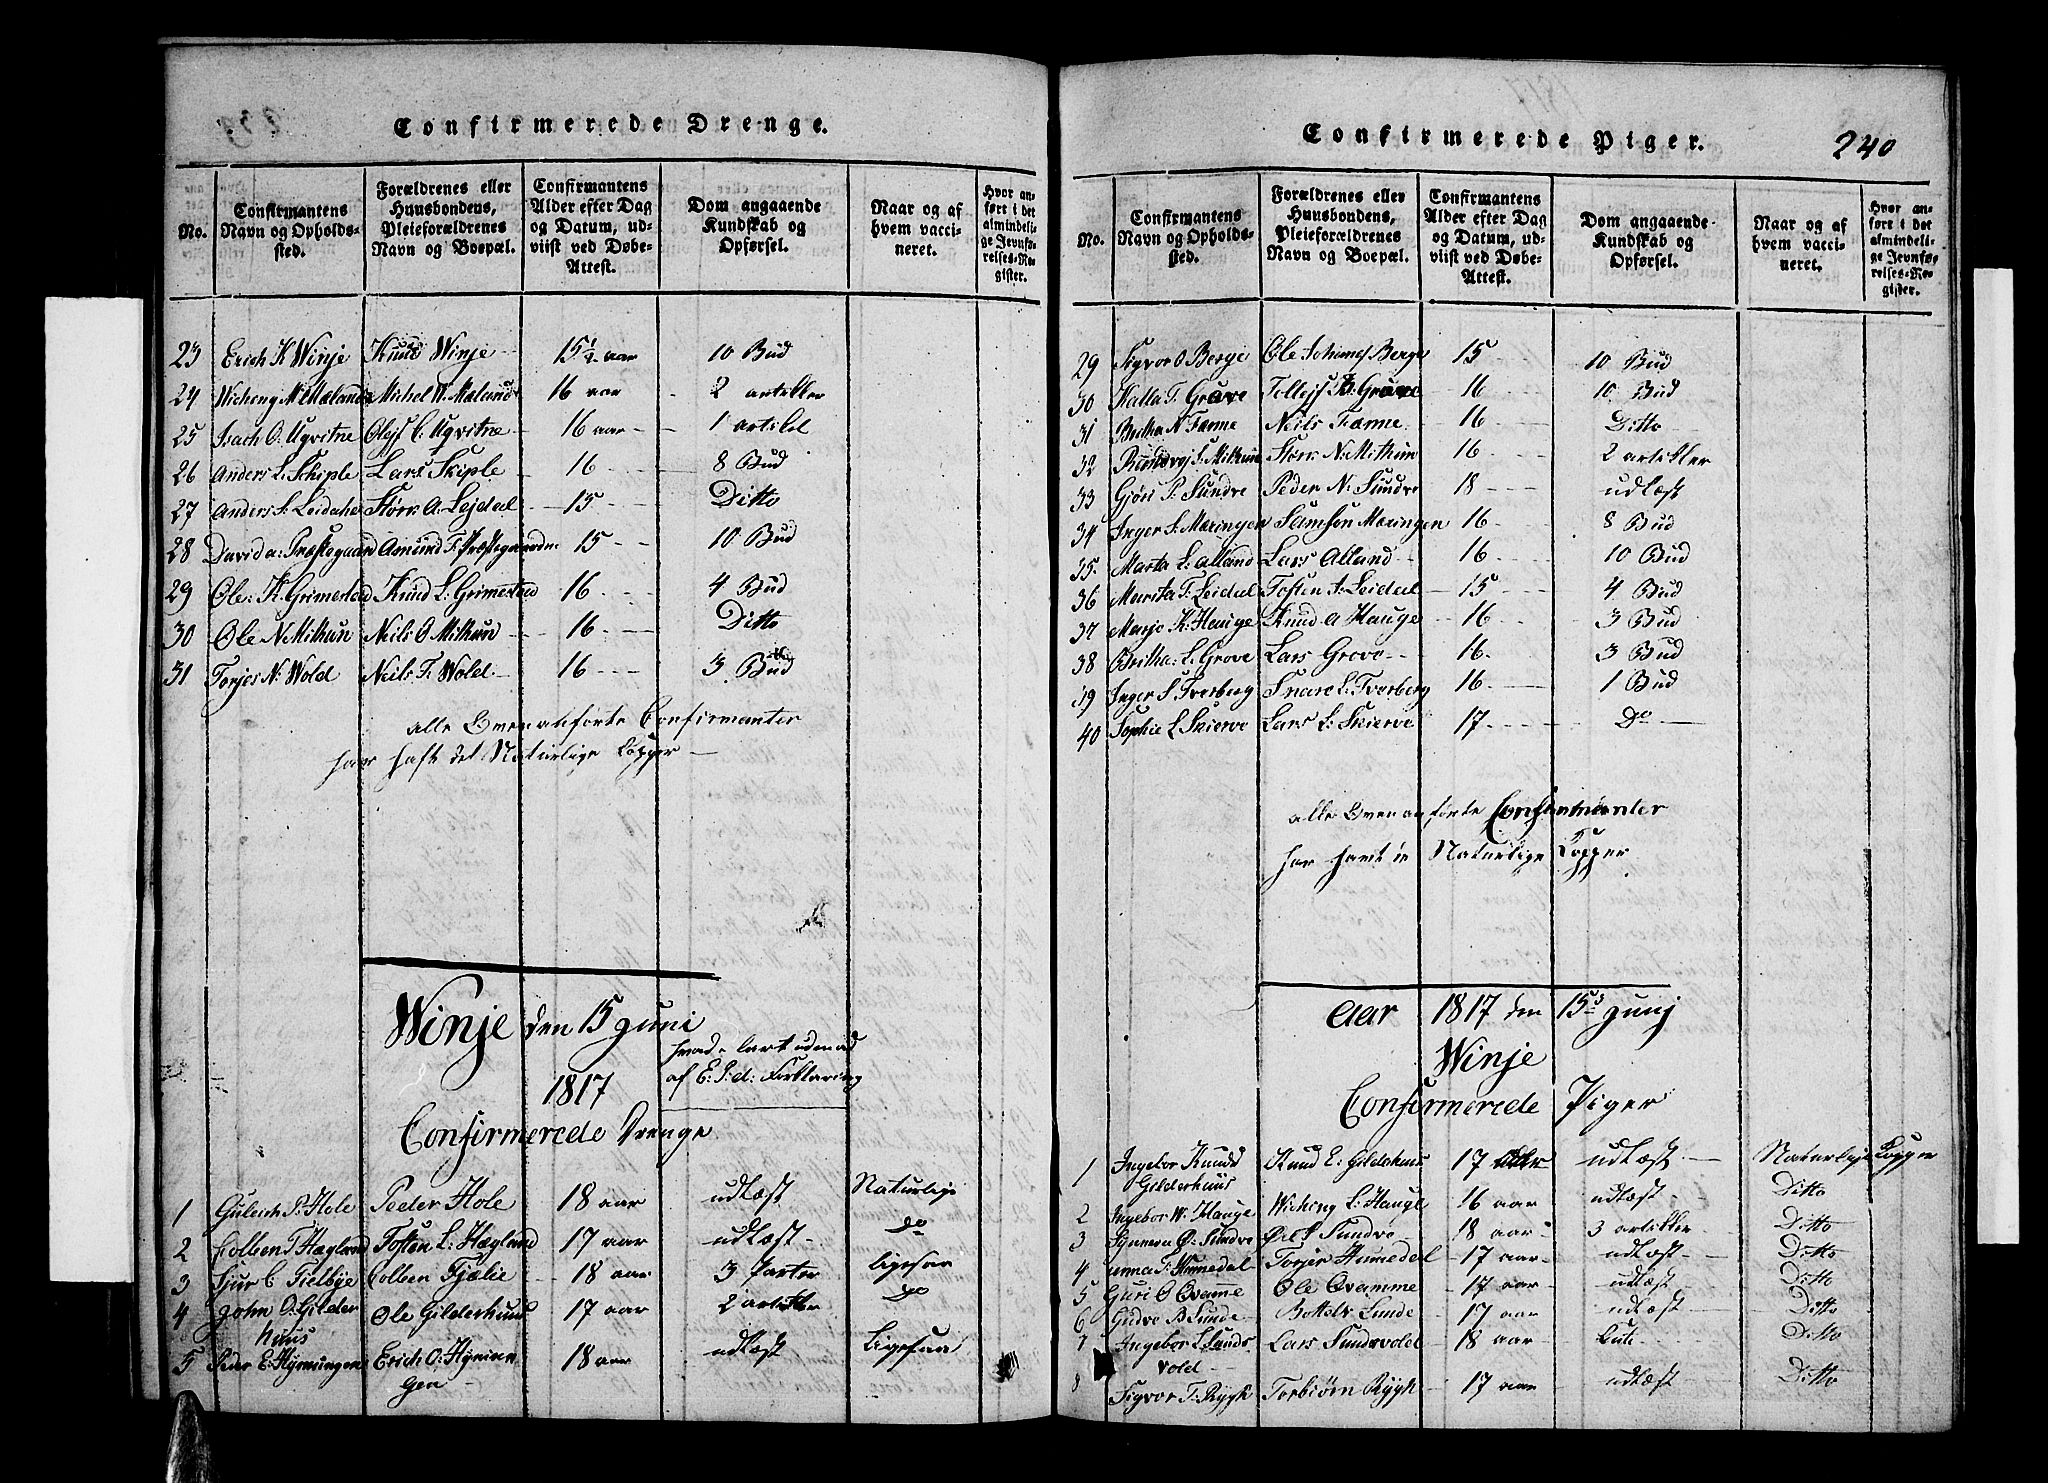 Confirmerede Drenge.
No.
Confirmantens Navn og Opholdssted.
Forældrenes eller Huusbondens, Pleieforældrenes Navn og Boepæl.
Confirmantens Alder efter Dag og Datum, udviist ved Døbe-Attest.
Dom angaaende Kundskab og Opførsel.
Naar og af hvem vaccineret.
Hvor anført i det almindelige Jevnførelses-Register.
23 Erich K Winje Knud Winje 15 1/2 aar 10 Bud
24 Wicheng M. Mæland Michel W. Mælund 16 aar 2 artikler
25 Isach O. Ugvitne Olejf C. Ugvitne 16 aar 1 artikel
26 Anders L. Skiple Lars Skiple 16 8 Bud
27 Anders S. Leidahe Størk A. Lejdal 15 Ditto
28 David a: Præstegaard Amund T. Præstegaarden 15 10 Bud
29 Ole K. Grimestad Knud L. Grimestad 16 4 Bud
30 Ole N Mithun Neils O Mithun 16 Ditto
31 Torjes N: Wold Neils T. Wold 16 3 Bud
alle Ovenanførte Confirmanter
har haft det Naturlige Copper
Winje den 15 Juni
1817
hvad lært udenad
af E. P: d: Forklaring
Confirmerede Drenge
1 Gulech P. Hole Peder Hole 18 aar udlæst Naturlige
2 Colben T Hægland Tosten L: Hægland 17 aar udlæst do
3 Sjur C Tielbye Colben Tjælie 18 aar 3 Parter ligesaa
4 John O. Gilder Ole Gilderhuus 17 aar 2 artikler do
huus
5 Peder E. Hyrnungen Erich O. Hyrnun 18 aar udlæst Ligesaa
gen
Confirmerede Piger.
240
No.
Confirmantens Navn og Opholdssted.
Forældrenes eller Huusbondens, Pleieforældrenes Navn og Boepæl.
Confirmantens Alder efter Dag og Datum, udviist ved Døbe-Attest.
Dom angaaende Kundskab og Opførsel.
Naar og af hvem vaccineret.
Hvor anført i det almindelige Jevnførelses-Register.
29 Sigvor O Berge Ole Berge 15 10 Bud
30 Halla T. Grave Tollejf Grave 16 10 Bud
31 Britha N Tænne Neils Tænne 16 Ditto
32 S. Mithun Størk N. Mithun 16 2 artikler
33 Gjøri P. Sundve Peder N. Sundve 18 udlæst
34 Inger S. Mæringen Samson Mæringen 16 8 Bud
35. Marta L. Alland Lars Alland 16 10 Bud
36 Marita T. Leidal Tosten A. Leidal 15 4 Bud
37 K. Hauge Knud a Hauge 16 3 Bud
38 Britha L. Grove Lars Grove 16. 3 Bud
39 Inger S Tverberg Snare L. Tverberg 16 1 Bud
40 Sophie L Skierve Lars L. Skierve 17 Do
alle Ovenanførte Confirmanter
har Naturlige Copper
Aar 1817 den 15de Junij
Winje
Confirmerede Piger
1 Ingebor Knuds Knud E: Gildehuus 17 aar udlæst Naturlige Copper
Gilderhuus
2 Ingebor W. Hauge Wicheng L. Hauge 16 aar udlæst Ditto
3 Synneva O. Sundve Sundve 18 aar 3 artikler Ditto
4 T. Humedal Torjer Humedal 17 aar udlæst Ditto
5 Guri O Qvamme Ole Qvamme 17 aar udlæst Ditto
6 Gudve B Lunde Bottolv Lunde 17 aar udlæst Ditto
7 Ingebor L Sunds Lars Sundsvold 18 aar Ditto
vold
8 Sigvor T. Rygh Torbiørn Rygh 17 aar udlæst Ditto